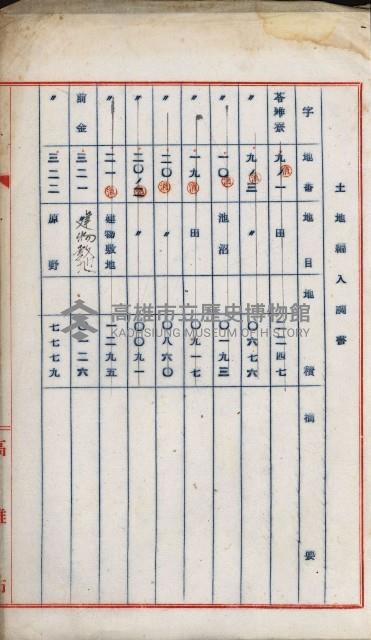 土地編入調書
字 地番 地目 地積 摘要
苓雅寮 九ノ一 田 二四七
〃 九ノ三 〃 〇六七六
〃 一〇 池沼 〇一九三
〃 一九 田 〇九一七
〃 二〇 〃 〇八六〇
〃 二〇ノ二 〃 〇〇九一
〃 二一 建物敷地 一二九五
前金 三二一 建物敷地 一二六
〃 三二二 原野 七七七九
高雄市
高雄市立歷史博物館
KAOHSIUNG MUSEUM OF HISTORY